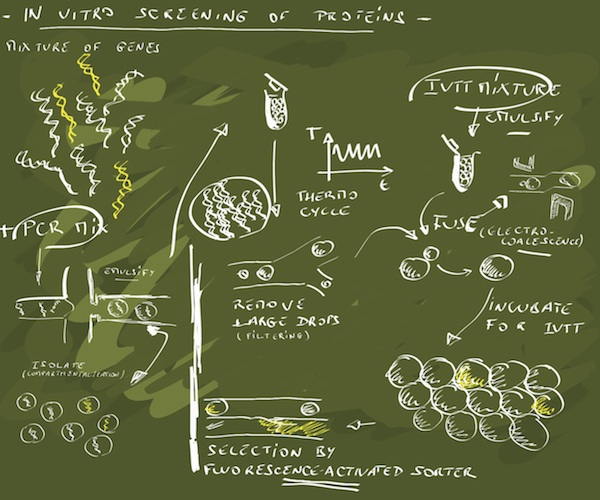 - IN VITRO SCREENING OF PROTEINS -
MIXTURE OF GENES
+ PCR MIX
EMULSIFY
ISOLATE
(COMPARTMENTALISATION)
T
t
THERMO
CYCLE
REMOVE
LARGE DROPS
(FILTERING)
IVTT MIXTURE
EMULSIFY
FUSE
(ELECTRO-
COALESCENCE)
INCUBATE
FOR IVTT
SELECTION BY
FLUORESCENCE-ACTIVATED SORTER